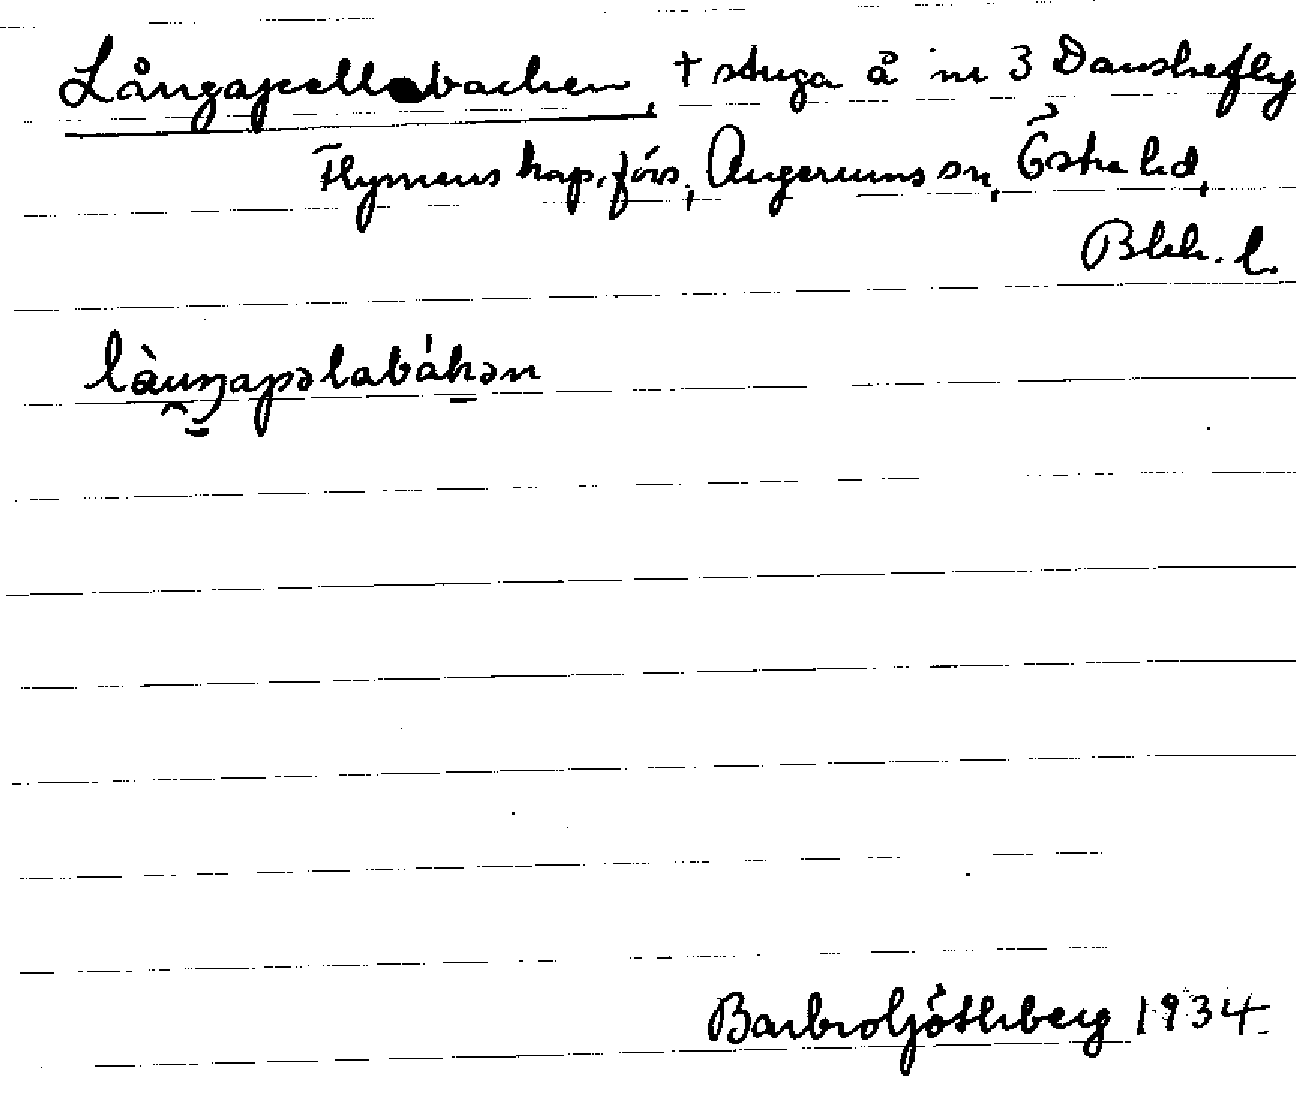 Långapellabacken, † stuga å nr 3 Danskefly
Flymens kap. förs., Augerums sn, Östra hd,
Blek. l.
làuŋapəlabákən
Barbro Göthberg 1934